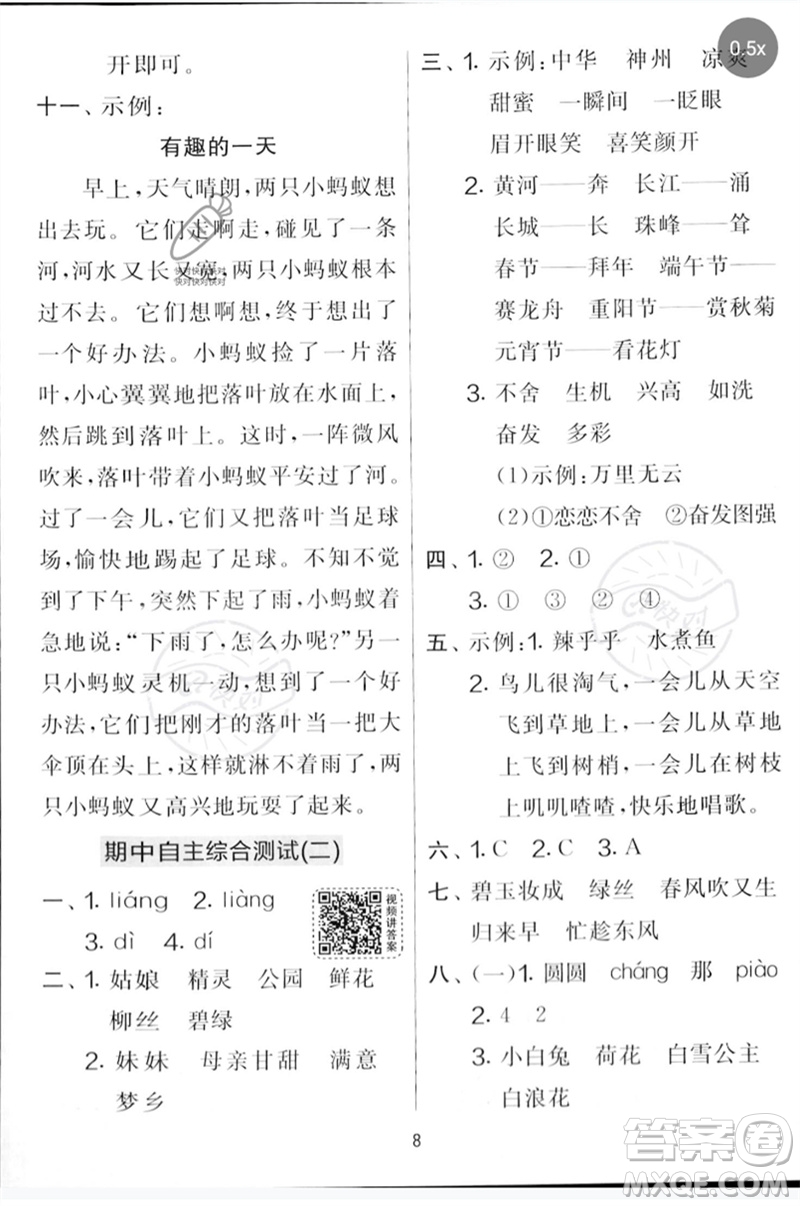 开即可。
十一、示例：
有趣的一天
早上，天气晴朗，两只小蚂蚁想
出去玩。它们走啊走，碰见了一条
河，河水又长又宽，两只小蚂蚁根本
过不去。它们想啊想，终于想出了
一个好办法。小蚂蚁捡了一片落
叶，小心翼翼地把落叶放在水面上，
然后跳到落叶上。这时，一阵微风
吹来，落叶带着小蚂蚁平安过了河。
过了一会儿，它们又把落叶当足球
场，愉快地踢起了足球。不知不觉
到了下午，突然下起了雨，小蚂蚁着
急地说：“下雨了，怎么办呢？”另一
只小蚂蚁灵机一动，想到了一个好
办法，它们把刚才的落叶当一把大
伞顶在头上，这样就淋不着雨了，两
只小蚂蚁又高兴地玩耍了起来。
期中自主综合测试(二)
一、1. liáng 2. liàng
3. dì 4. dí
视频讲答案
二、1. 姑娘 精灵 公园 鲜花
柳丝 碧绿
2. 妹妹 母亲甘甜 满意
梦乡
0.5x
三、1. 示例：中华 神州 凉爽
甜蜜 一瞬间 一眨眼
眉开眼笑 喜笑颜开
2. 黄河——奔 长江——涌
长城——长 珠峰——耸
春节——拜年 端午节——
赛龙舟 重阳节——赏秋菊
元宵节——看花灯
3. 不舍 生机 兴高 如洗
奋发 多彩
(1)示例：万里无云
(2)①恋恋不舍 ②奋发图强
四、1. ② 2. ①
3. ① ③ ② ④
五、示例：1. 辣乎乎 水煮鱼
2. 鸟儿很淘气，一会儿从天空
飞到草地上，一会儿从草地
上飞到树梢，一会儿在树枝
上叽叽喳喳，快乐地唱歌。
六、1. C 2. B 3. A
七、碧玉妆成 绿丝 春风吹又生
归来早 忙趁东风
八、(一)1. 圆圆 cháng 那 piào
2. 4 2
3. 小白兔 荷花 白雪公主
白浪花
8
答案圈
MXQE.COM
快对快对快对
快对快对快对